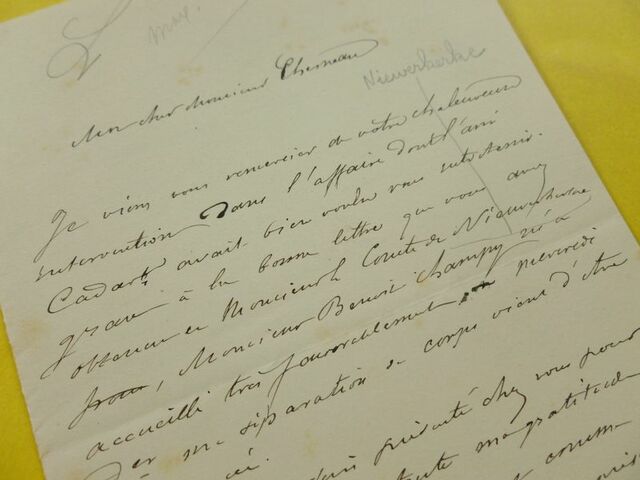 Mon cher Monsieur Chesneau
Nieuwerkerke
Je viens vous remercier de votre chaleureuse
intervention dans l'affaire dont l'ami
Cadart avait bien voulu vous entretenir.
grace à la bonne lettre que vous avez
obtenue de Monsieur le Comte de Nieuwerkerke
Monsieur Benoit Champy m'a
accueilli très favorablement mercredi
ma séparation de corps vient d'être
suis présenté chez vous pour
toute ma gratitude